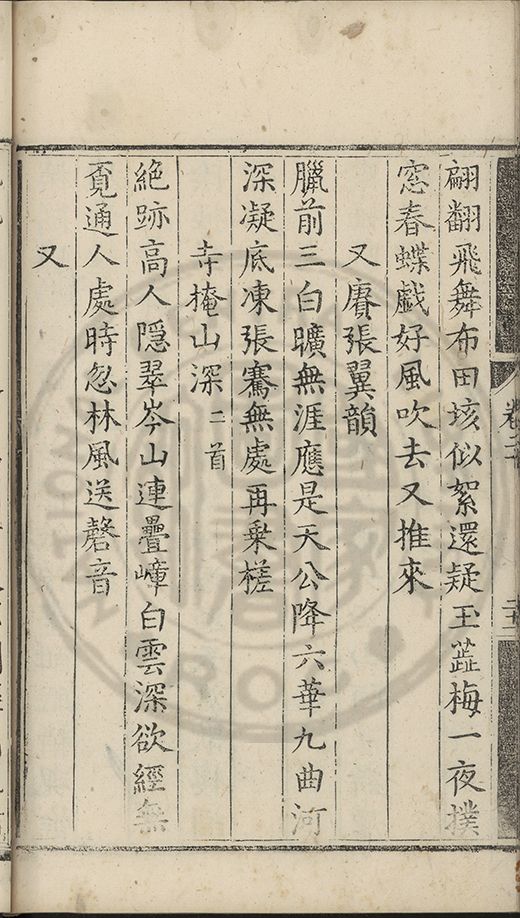 翩翻飛舞布田垓似絮還疑玉蕋梅一夜撲
窓春蝶戯好風吹去又推來
又賡張翼韻
臘前三白曠無涯應是天公降六華九曲河
深凝底凍張騫無處再乗槎
寺掩山深二首
絶跡高人隠翠岑山連疊嶂白雲深欲經無
覓通人處時忽林風送磬音
又